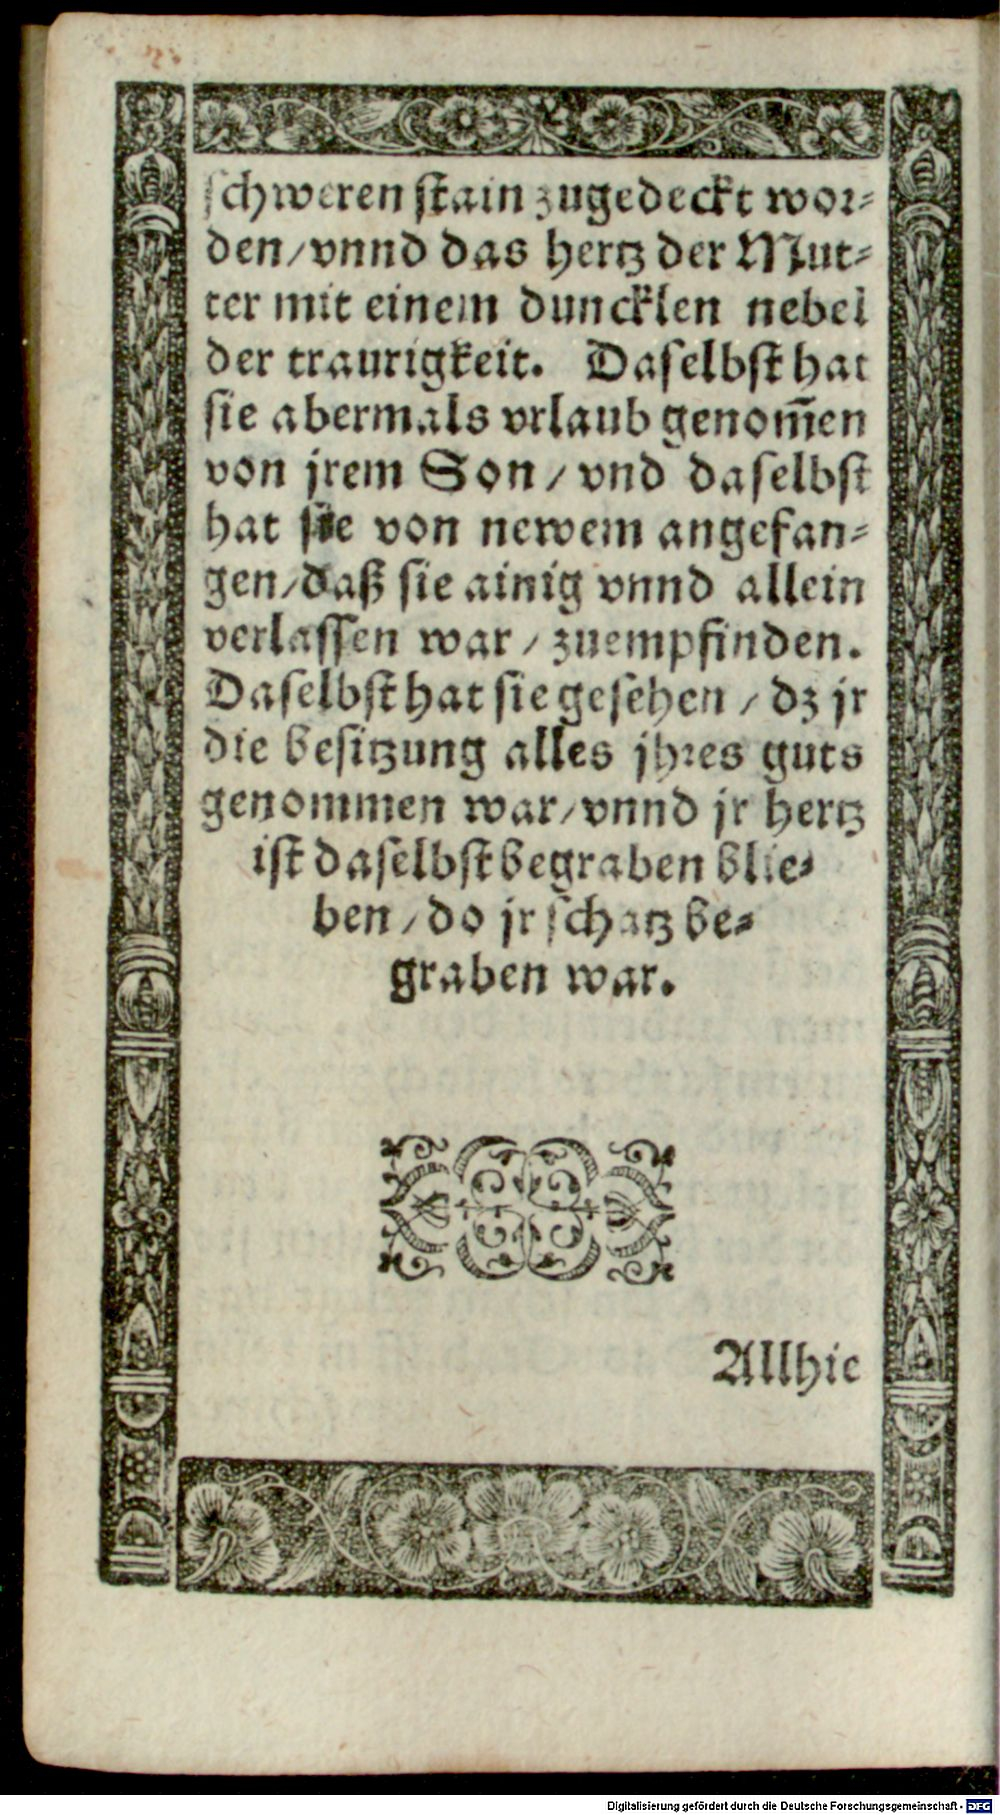 schweren stain zugedeckt wor⸗
den/vnnd das hertz der Mut⸗
ter mit einem duncklen nebel
der traurigkeit. Daselbst hat
sie abermals vrlaub genom̃en
von jrem Son/vnd daselbst
hat sie von newem angefan⸗
gen/daß sie ainig vnnd allein
verlassen war/zuempfinden.
Daselbst hat sie gesehen/dz jr
die besitzung alles jhres guts
genommen war/vnnd jr hertz
ist daselbst begraben blie⸗
ben/do jr schatz be⸗
graben war.
Allhie
Digitalisierung gefördert durch die Deutsche Forschungsgemeinschaft - DFG